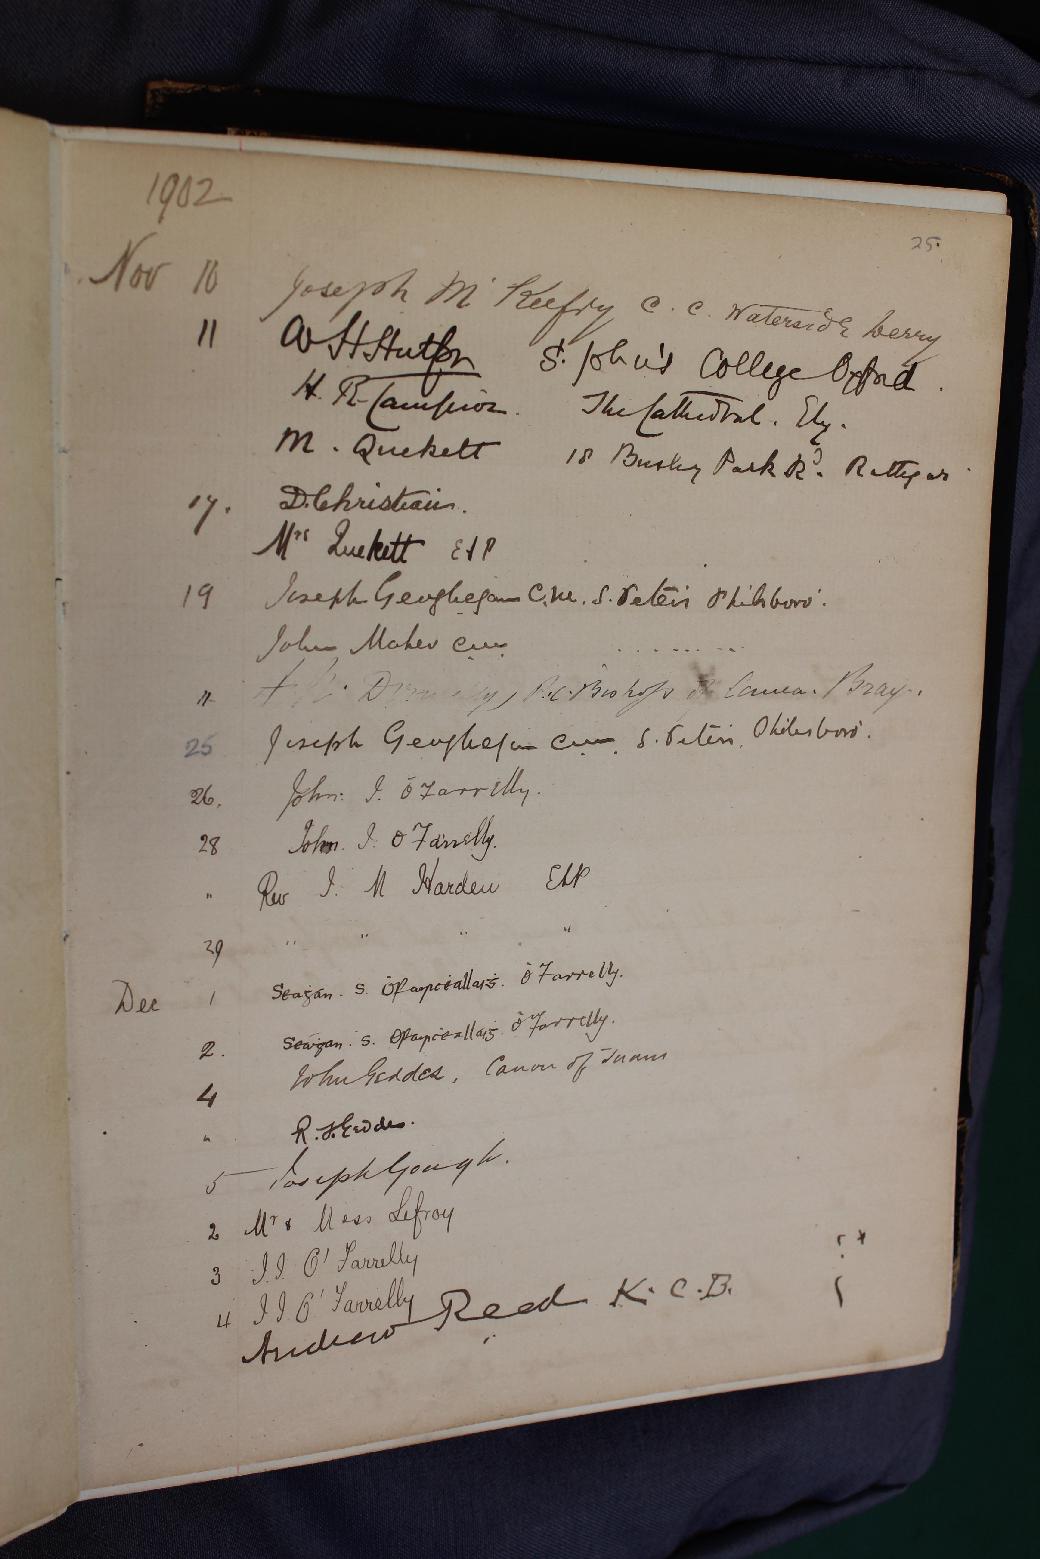 1902
25.
Nov 10 Joseph McKeefry C.C. Waterside Derry
11 W H Hutton S. John's College Oxford.
H. R. Campion. The Cathedral. Ely.
M. Quekett 18 Bushy Park Rd. Rathgar
17. D. Christian.
Mrs Quekett
19 Joseph Geoghegan C.M. S. Peter's Phibsboro'.
John Maher C.M. . . . . . . . . .
" + N. Donnelly, Bishop of Canea. Bray.
25 Joseph Geoghegan C.M. S. Peter's, Phibsboro'.
26. John. I. O'Farrelly.
28 John. I. O'Farrelly.
" Rev I. M Harden
29 " " " "
Dec 1 Seaġan. S. O'Farrelly.
2. Seaġan. S. O'Farrelly.
4 John Geddes, Canon of Tuam
" R. Geddes.
5 Joseph Gough.
2 Mr & Miss Lefroy
3 I.I. O'Farrelly
4 I I O'Farrelly
Andrew Reed K.C.B.